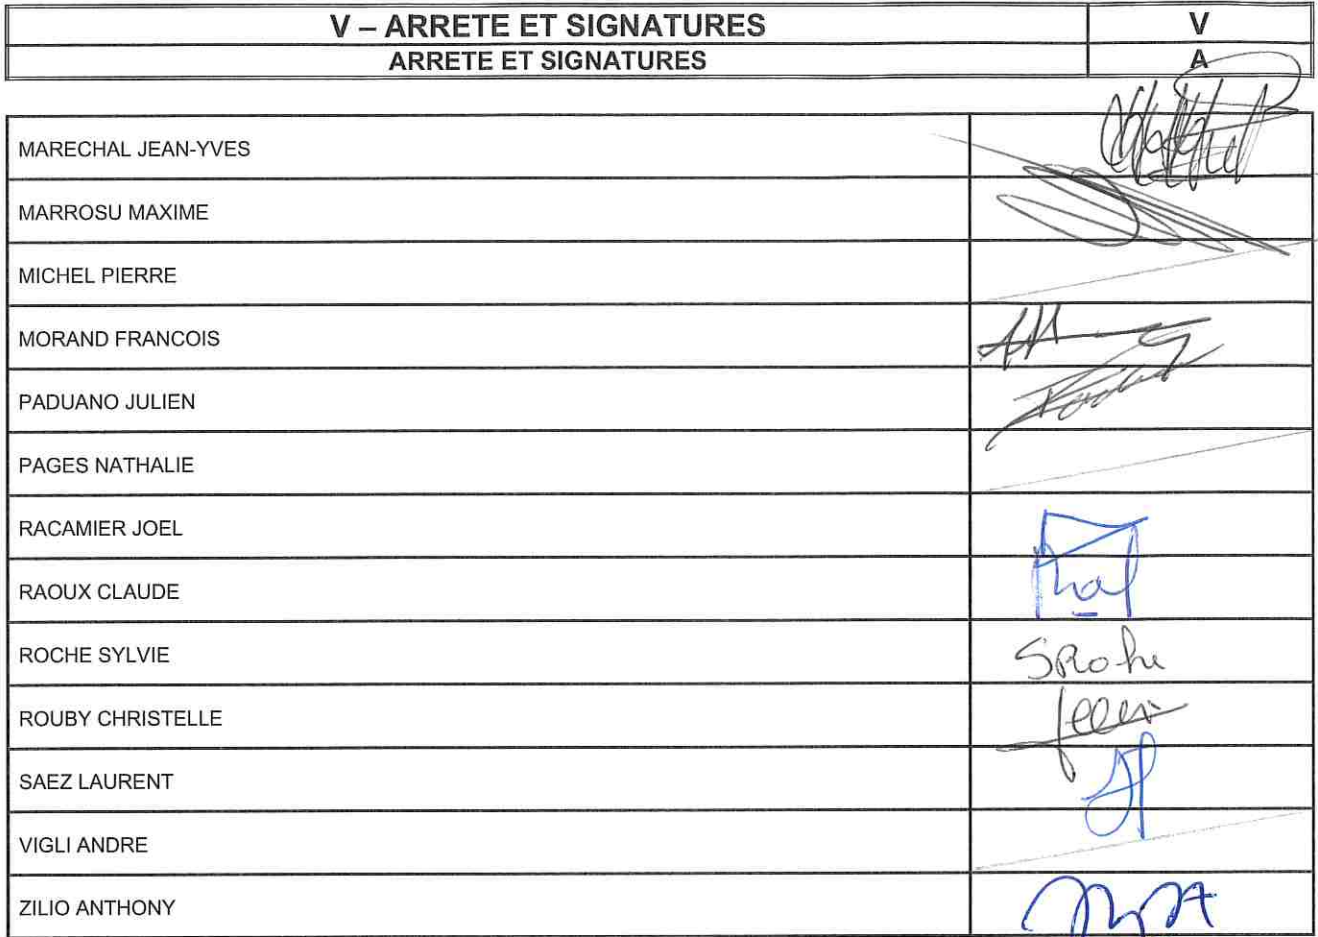 V – ARRETE ET SIGNATURES V
ARRETE ET SIGNATURES A
MARECHAL JEAN-YVES
MARROSU MAXIME
MICHEL PIERRE
MORAND FRANCOIS
PADUANO JULIEN
PAGES NATHALIE
RACAMIER JOEL
RAOUX CLAUDE
ROCHE SYLVIE
ROUBY CHRISTELLE
SAEZ LAURENT
VIGLI ANDRE
ZILIO ANTHONY